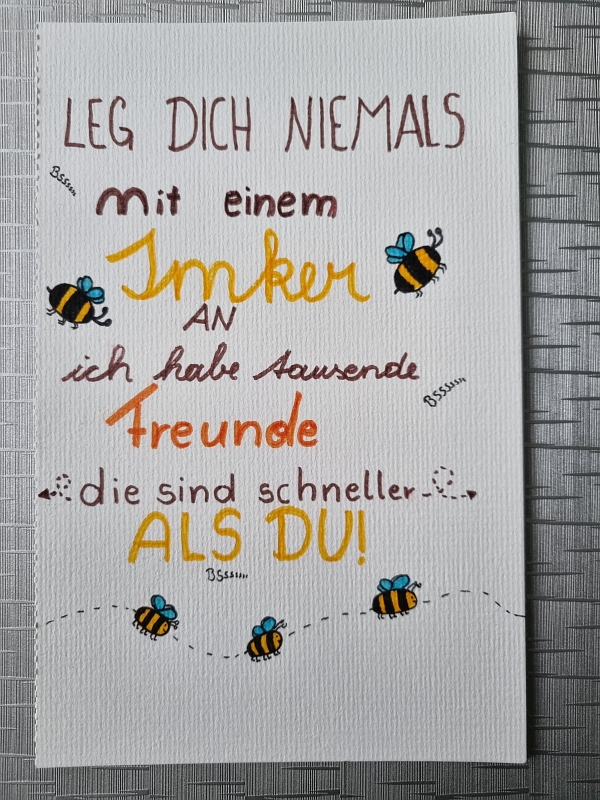 LEG DICH NIEMALS
BSssss...
mit einem
Imker
AN
ich habe tausende
BSSsss...
Freunde
die sind schneller
ALS DU!
BSssss...